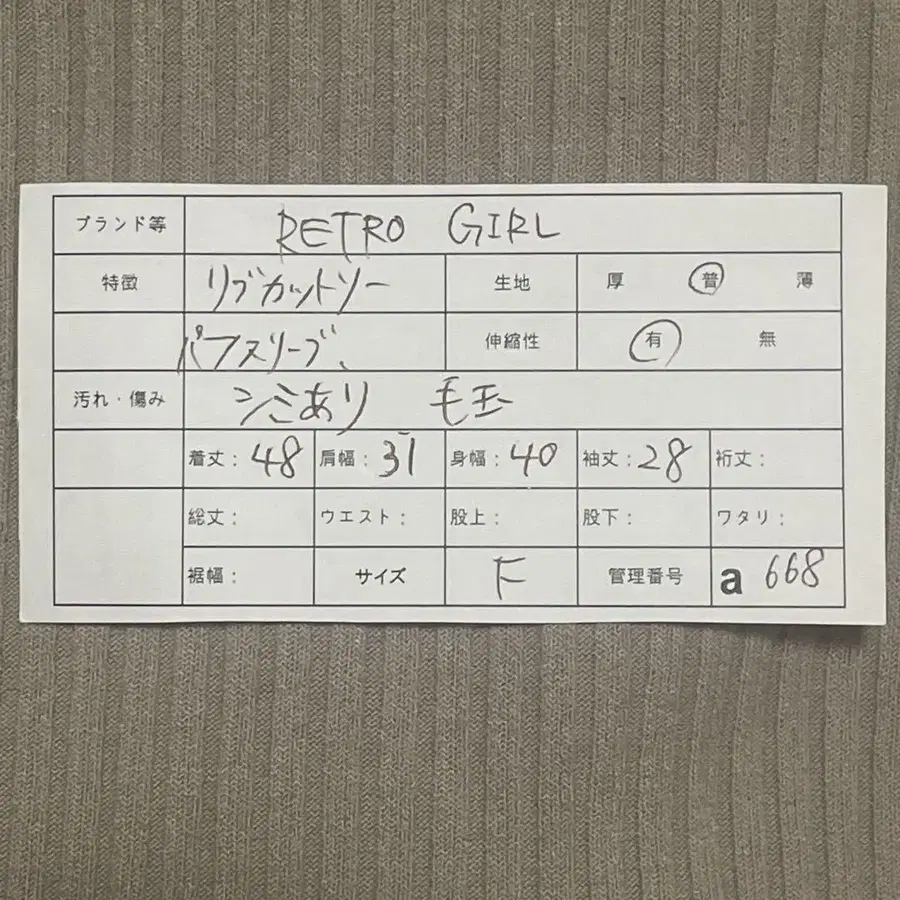 ブランド等 RETRO GIRL
特徴 リブカットソー 生地 厚 普 薄
パフスリーブ、 伸縮性 有 無
汚れ・傷み シミあり 毛玉
着丈: 48 肩幅: 31 身幅: 40 袖丈: 28 裄丈:
総丈: ウエスト: 股上: 股下: ワタリ:
裾幅: サイズ F 管理番号 a 668